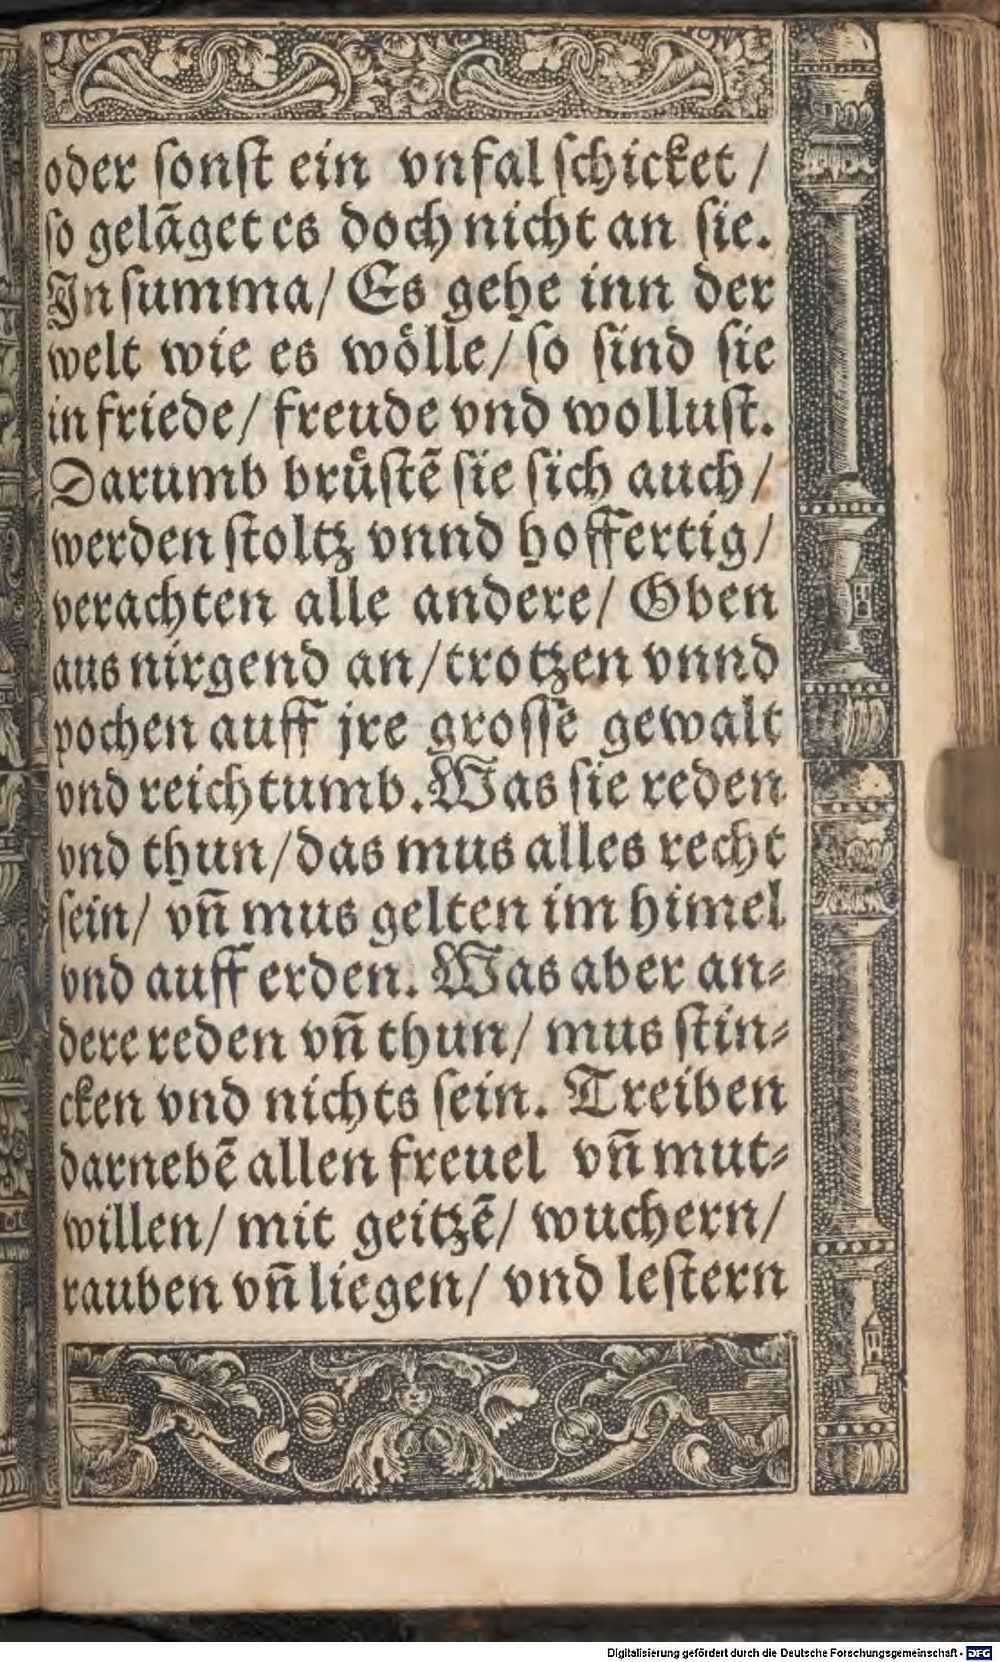 oder ſonſt ein vnfal ſchicket /
ſo gelãget es doch nicht an ſie.
In ſumma / Es gehe inn der
welt wie es woͤlle / ſo ſind ſie
in friede / freude vnd wolluſt.
Darumb bruͤſtẽ ſie ſich auch /
werden ſtoltz vnnd hoffertig /
verachten alle andere / Oben
aus nirgend an / trotzen vnnd
pochen auff jre groſſe gewalt
vnd reichtumb. Was ſie reden
vnd thun / das mus alles recht
ſein / vñ mus gelten im himel
vnd auff erden. Was aber an⸗
dere reden vñ thun / mus ſtin⸗
cken vnd nichts ſein. Treiben
darnebẽ allen freuel vñ mut⸗
willen / mit geitzẽ / wuchern /
rauben vñ liegen / vnd leſtern
Digitalisierung gefördert durch die Deutsche Forschungsgemeinschaft - DFG